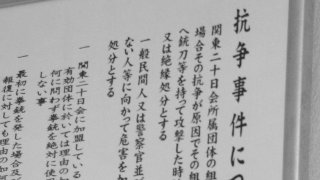 抗争事件につ
関東二十日会所属団体の組
場合その抗争が原因でその組
へ銃刀等を持って攻撃した時
又は絶縁処分とする
一般民間人又は警察官並
ない人等に向かって危害を加
処分とする
一 関東二十日会に加盟している
有効団体に於いては理由の如
何に問わず拳銃を絶対に使
しない事
一 最初に拳銃を発した場合及
報復に対しても理由の如何